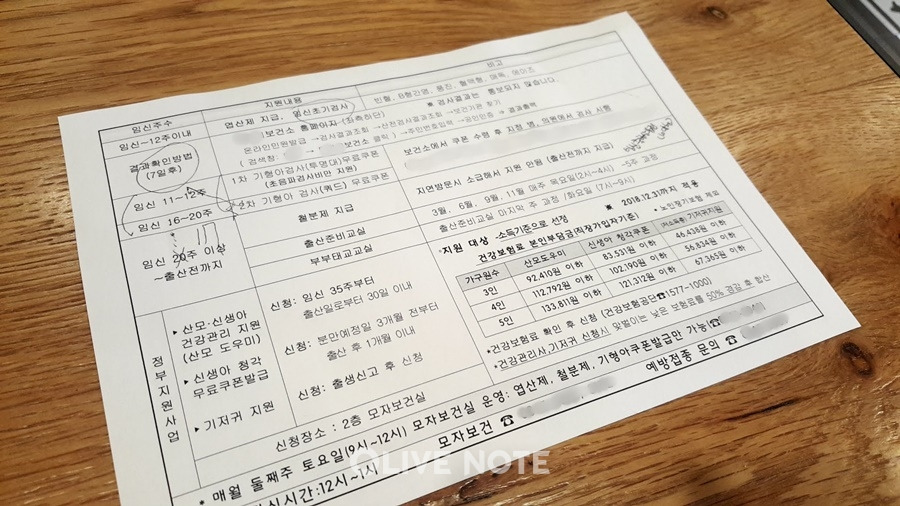 임신주수 지원내용 비고
임신~12주이내 엽산제 지급, 임신초기검사 빈혈, B형간염, 풍진, 혈액형, 매독, 에이즈
※ 검사결과는 통보되지 않습니다.
결과확인방법
(7일후)
보건소 홈페이지 (좌측하단)
온라인민원발급 →검사결과조회 →산전검사결과조회 →보건기관 찾기
( 검색창: 보건소 클릭 ) →주민번호입력 →공인인증 → 결과출력
임신 11~12주 1차 기형아검사(투명대)무료쿠폰
(초음파검사비만 지원)
보건소에서 쿠폰 수령 후 지정 병, 의원에서 검사 시행
임신 16~20주 2차 기형아 검사(쿼드) 무료쿠폰
17
임신 20주 이상
~출산전까지
철분제 지급 지연방문시 소급해서 지원 안됨 (출산전까지 지급)
출산준비교실 3월, 6월, 9월, 11월 매주 목요일(2시~4시) -5주 과정
부부태교교실 출산준비교실 마지막 주 과정 (화요일 (7시~9시)
정부지원사업
▸산모·신생아
건강관리 지원
(산모 도우미)
신청: 임신 35주부터
출산일로부터 30일 이내
▸신생아 청각
무료쿠폰발급
신청: 분만예정일 3개월 전부터
출산 후 1개월 이내
▸기저귀 지원 신청: 출생신고 후 신청
※ 2018.12.31까지 적용
·지원 대상 :소득기준으로 선정
건강보험료 본인부담금(직장가입자기준) * 노인장기보험 제외
가구원수 산모도우미 신생아 청각쿠폰 (저소득층) 기저귀지원
3인 92,410원 이하 83,531원 이하 46,438원 이하
4인 112,792원 이하 102,190원 이하 56,834원 이하
5인 133,811원 이하 121,312원 이하 67,365원 이하
*건강보험료 확인 후 신청 (건강보험공단☎1577-1000)
*건강관리사,기저귀 신청시 맞벌이는 낮은 보험료를 50% 경감 후 합산
신청장소 : 2층 모자보건실
* 매월 둘째주 토요일(9시~12시) 모자보건실 운영: 엽산제, 철분제, 기형아쿠폰발급만 가능(☎
점심시간:12시~1시 모자보건 ☎ 예방접종 문의 ☎
OLIVE NOTE